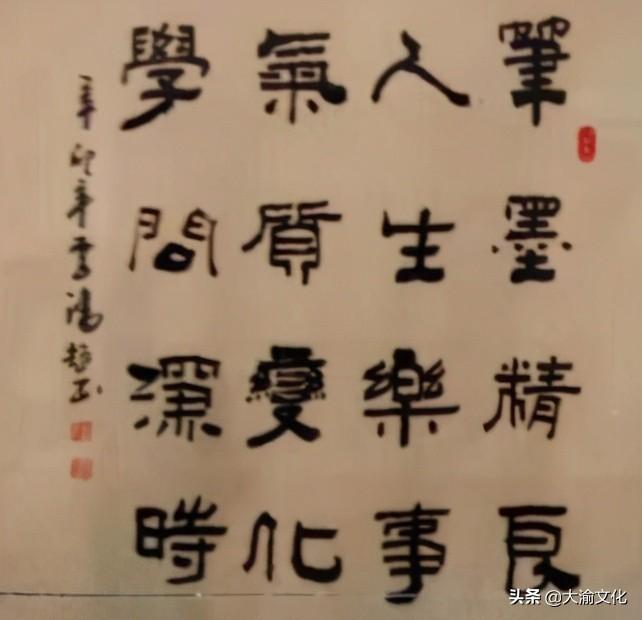 筆墨精良
人生樂事
氣質變化
學問深時
辛卯年
头条 @大渝文化